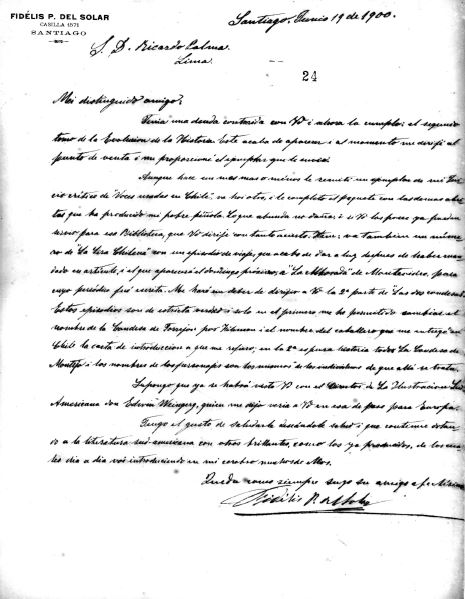 FIDÉLIS P. DEL SOLAR
CASILLA 1571
SANTIAGO
Santiago, Junio 19 de 1900.
S. D. Ricardo Palma.
Lima.
24
Mi distinguido amigo:
Tenia una deuda contraida con Vd i ahora la cumplo: el segundo
tomo de la Evolucion de la Historia. Este acaba de aparecer i al momento me dirijí al
punto de venta i me proporcioné el ejemplar que le envio.
Aunque hace un mes mas o ménos le remití un ejemplar de mi
critico de "Voces usadas en Chile", va hoi otro, i le completo el paquete con las demas
que ha producido mi pobre Lo que abunda no daña: i si Vd las posee ya pueden
servir para esa Biblioteca, que Vd dirije con tanto acierto. va tambien un núme-
ro de "La Lira Chilena" con un episodio de viaje, que acabo de dar a luz despues de haber
en i el que aparecerá el domingo próximo, a "La Alborada" de Montevideo, para
cuyo periódico fué escrita. Me hará un deber de dirijir a Vd la 2ª parte de "Las dos condesas".
Estos episodios son de estricta verdad i solo en el primero me he permitido cambiar el
nombre de la Condesa de por i el nombre del caballero que me entregó en
Chile la carta de introduccion a que me refiero; en la 2ª es pura historia todo. La Condesa de
Montijo i los nombres de los personajes son los mismos de los individuos de que allí se trata.
Supongo que ya se habrá visto Vd con el Director de La Ilustracion Sud
Americana don quien me dijo veria a Vd en esa de paso para Europa.
Tengo el gusto de saludarle deseándole salud i que continúe
do a la literatura sud-americana con otros brillantes, como los ya producidos, de los cua-
les dia a dia voi introduciendo en mi cerebro muchos de ellos.
Queda como siempre suyo su amigo
Fidélis P. del Solar